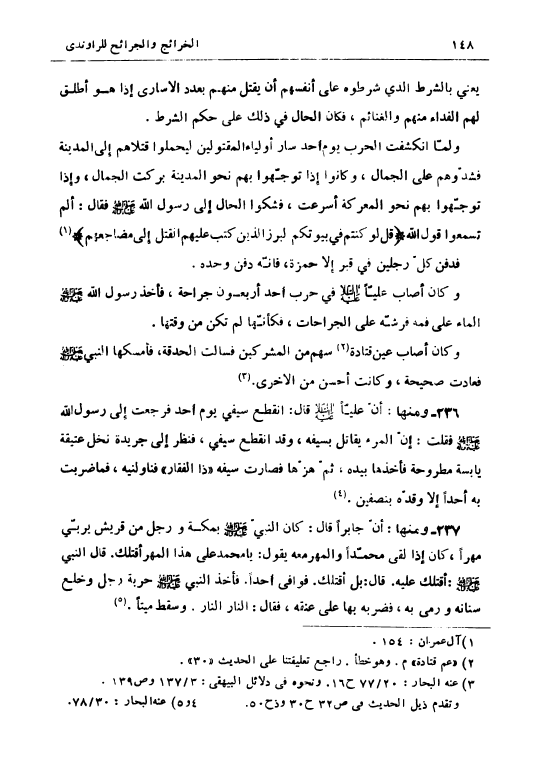 ١٤٨ الخرائج والجرائح للراوندي
يعني بالشرط الذي شرطوه على أنفسهم أن يقتل منهم بعدد الاسارى إذا هـو أطلق
لهم الفداء منهم والغنائم ، فكان الحال في ذلك على حكم الشرط .
ولمّا انكشفت الحرب يوم احد سار أولياء المقتولين ليحملوا قتلاهم إلى المدينة
فشدّوهم على الجمال ، وكانوا إذا توجّهوا بهم نحو المدينة بركت الجمال ، وإذا
توجّهوا بهم نحو المعركة أسرعت ، فشكوا الحال إلى رسول الله ﷺ فقال : ألم
تسمعوا قول الله ﴿قل لو كنتم في بيوتكم لبرز الذين كتب عليهم القتل إلى مضاجعهم﴾(١)
فدفن كلّ رجلين في قبر إلا حمزة، فانّه دفن وحده .
و كان أصاب عليّاً عليه السلام في حرب احد أربعـون جراحة ، فأخذ رسول الله ﷺ
الماء على فمه فرشّه على الجراحات ، فكأنّها لم تكن من وقتها .
وكان أصاب عين قتادة(٢) سهم من المشركين فسالت الحدقة، فأمسكها النبي ﷺ
فعادت صحيحة ، وكانت أحسن من الاخرى.(٣)
٢٣٦ـ ومنها : أنّ عليّاً عليه السلام قال: انقطع سيفي يوم احد فرجعت إلى رسول الله
ﷺ فقلت : إنّ المرء يقاتل بسيفه ، وقد انقطع سيفي ، فنظر إلى جريدة نخل عتيقة
يابسة مطروحة فأخذها بيده ، ثمّ هزّها فصارت سيفه «ذا الفقار» فناولنيه ، فماضربت
به أحداً إلا وقدّه بنصفين .(٤)
٢٣٧ـ ومنها : أنّ جابراً قال : كان النبيّ ﷺ بمكـة و رجل من قريش يربّي
مهراً ، كان إذا لقى محمّـداً والمهر معه يقول: يامحمد على هذا المهر أقتلك. قال النبي
ﷺ :أقتلك عليه. قال: بل أقتلك. فوافى احداً. فأخذ النبي ﷺ حربة رجل وخلع
سنانه و رمى به ، فضربه بها على عنقه ، فقال : النار النار . وسقط ميتاً .(٥)
١) آل عمران : ١٥٤ .
٢) «عم قتادة» م . وهو خطأ . راجع تعليقتنا على الحديث «٣٠».
٣) عنه البحار : ٧٧/٢٠ ح١٦. ونحوه في دلائل البيهقى : ١٣٧/٣ وص١٣٩ .
وتقدم ذيل الحديث في ص٣٢ ح٣٠ وذح٥٠. ٤و٥) عنه البحار : ٧٨/٣٠.